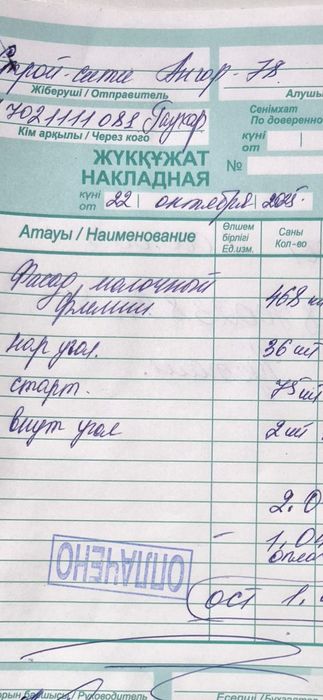 Строй-сити Ангар-78
Жіберуші / Отправитель
Алушы
77021111088
Кім арқылы / Через кого
Сенімхат
По доверенно
күні
от
ЖҮКҚҰЖАТ
НАКЛАДНАЯ
№
күні
от 22 октября 2025
Атауы / Наименование
Өлшем
бірлігі
Ед.изм.
Саны
Кол-во
Фасад молочный
468
нар угол. 36 шт
старт. 75 шт
внут угол 2 шт
2.0
- 1.0
опла
ОПЛАЧЕНО
ост 1.
Руководитель
Есепші / Бух